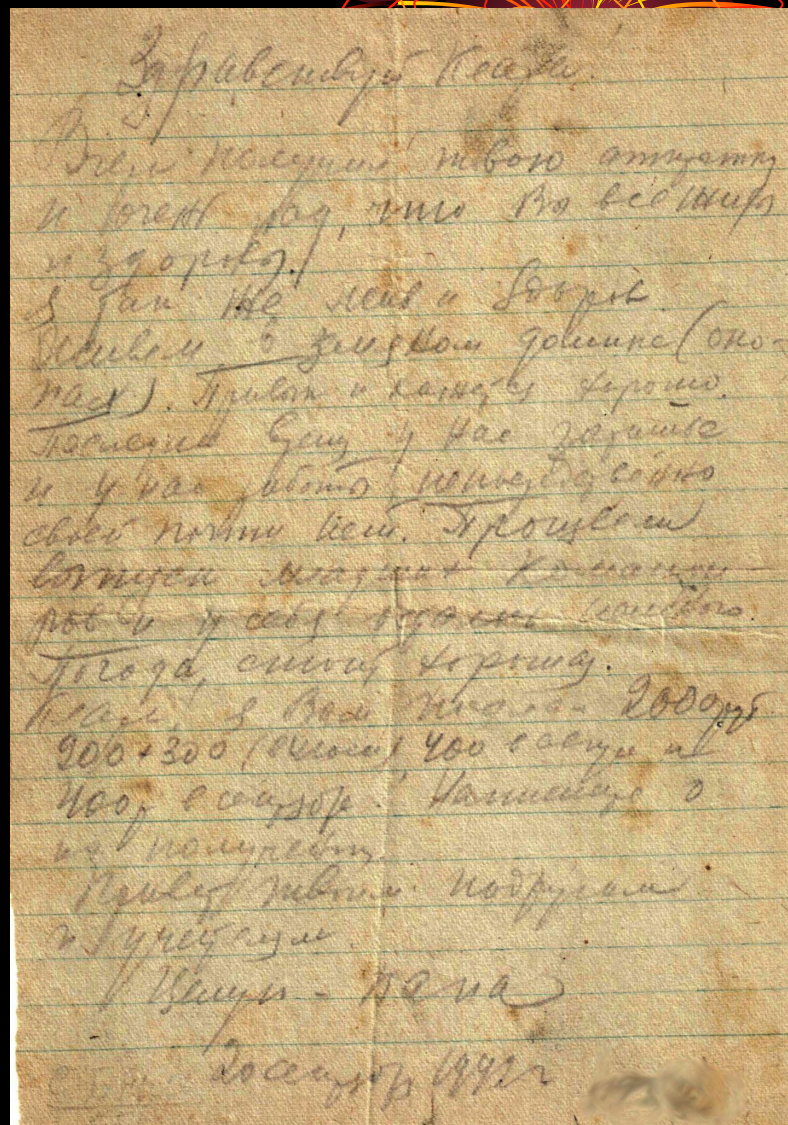 Здравствуй Клара!
Вчера получил твою открытку
и очень рад, что Вы все живы
и здоровы.
Я так же жив и здоров
Живем в земляном домике (око-
пах). Привык и кажется хорошо.
Последн у нас затишье
и у нас работы непосредственно
своей почти нет. Провели
выпуск младших команди-
ров и у себя
Погода стоит хорошая.
Клара, я Вам 2000 руб
900+300 (в июле) 400 в август и
400 р в сентябр. Напишите о
их получении.
Привет твоим подругам
и учителям
Целую - папа
20 сентябр 1942 г